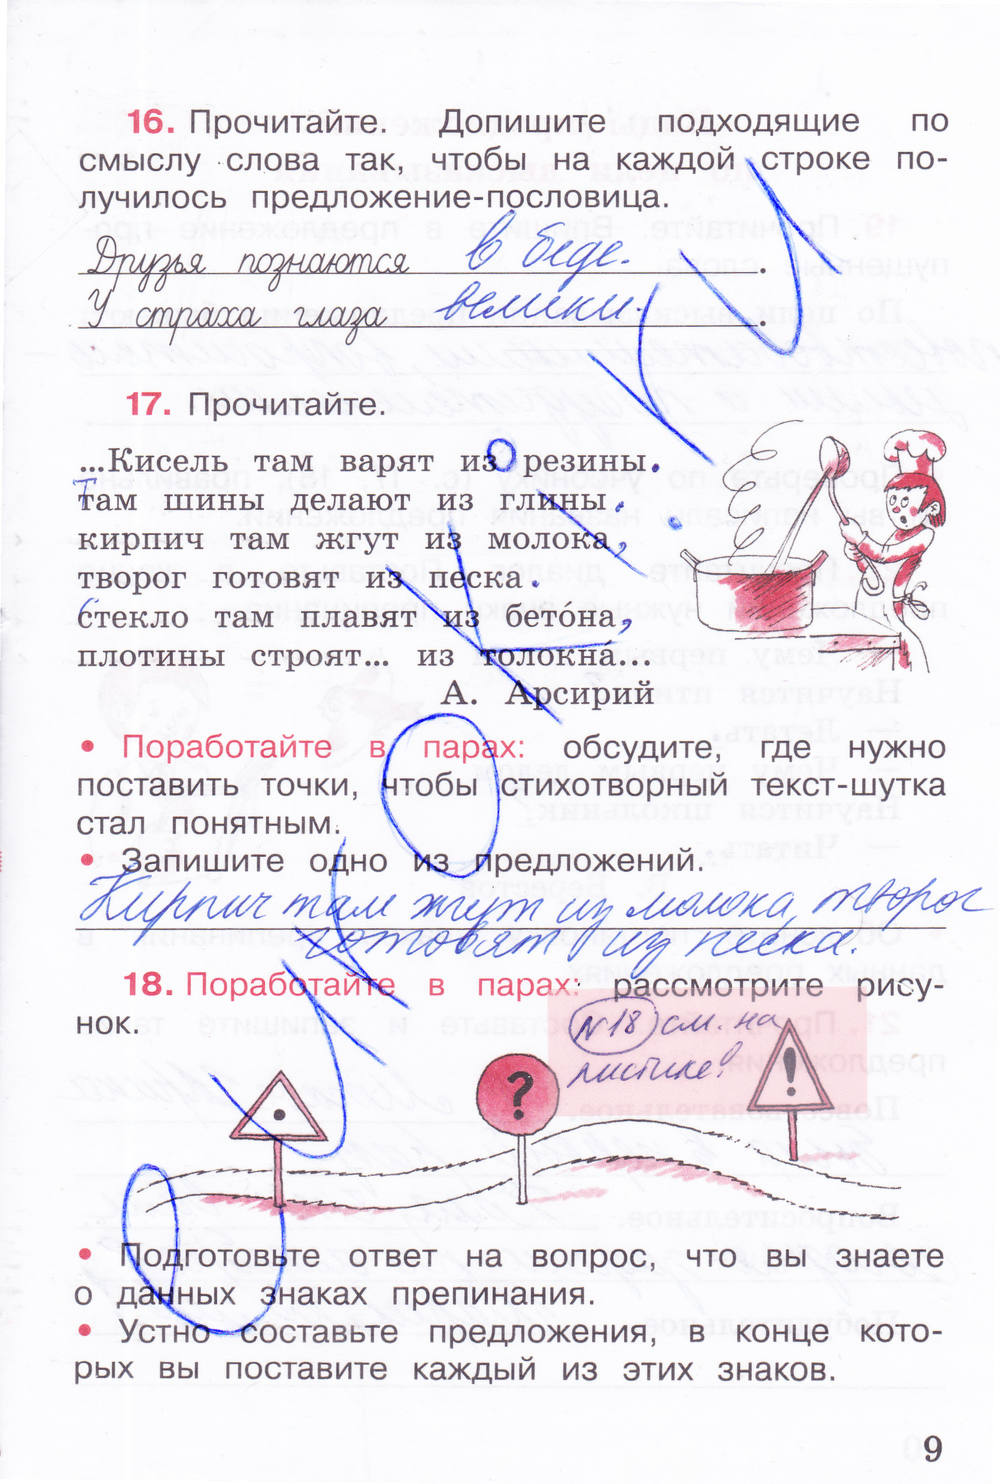 16. Прочитайте. Допишите подходящие по
смыслу слова так, чтобы на каждой строке по-
лучилось предложение-пословица.
Друзья познаются в беде. .
У страха глаза велики. .
17. Прочитайте.
...Кисель там варят из резины.
Там шины делают из глины.
кирпич там жгут из молока,
творог готовят из песка.
Стекло там плавят из бето́на,
плотины строят... из толокна́...
А. Арсирий
• Поработайте в парах: обсудите, где нужно
поставить точки, чтобы стихотворный текст-шутка
стал понятным.
• Запишите одно из предложений.
Кирпич там жгут из молока, творог
готовят из песка.
18. Поработайте в парах: рассмотрите рису-
нок.
№18 см. на
листике!
? !
• Подготовьте ответ на вопрос, что вы знаете
о данных знаках препинания.
• Устно составьте предложения, в конце кото-
рых вы поставите каждый из этих знаков.
9